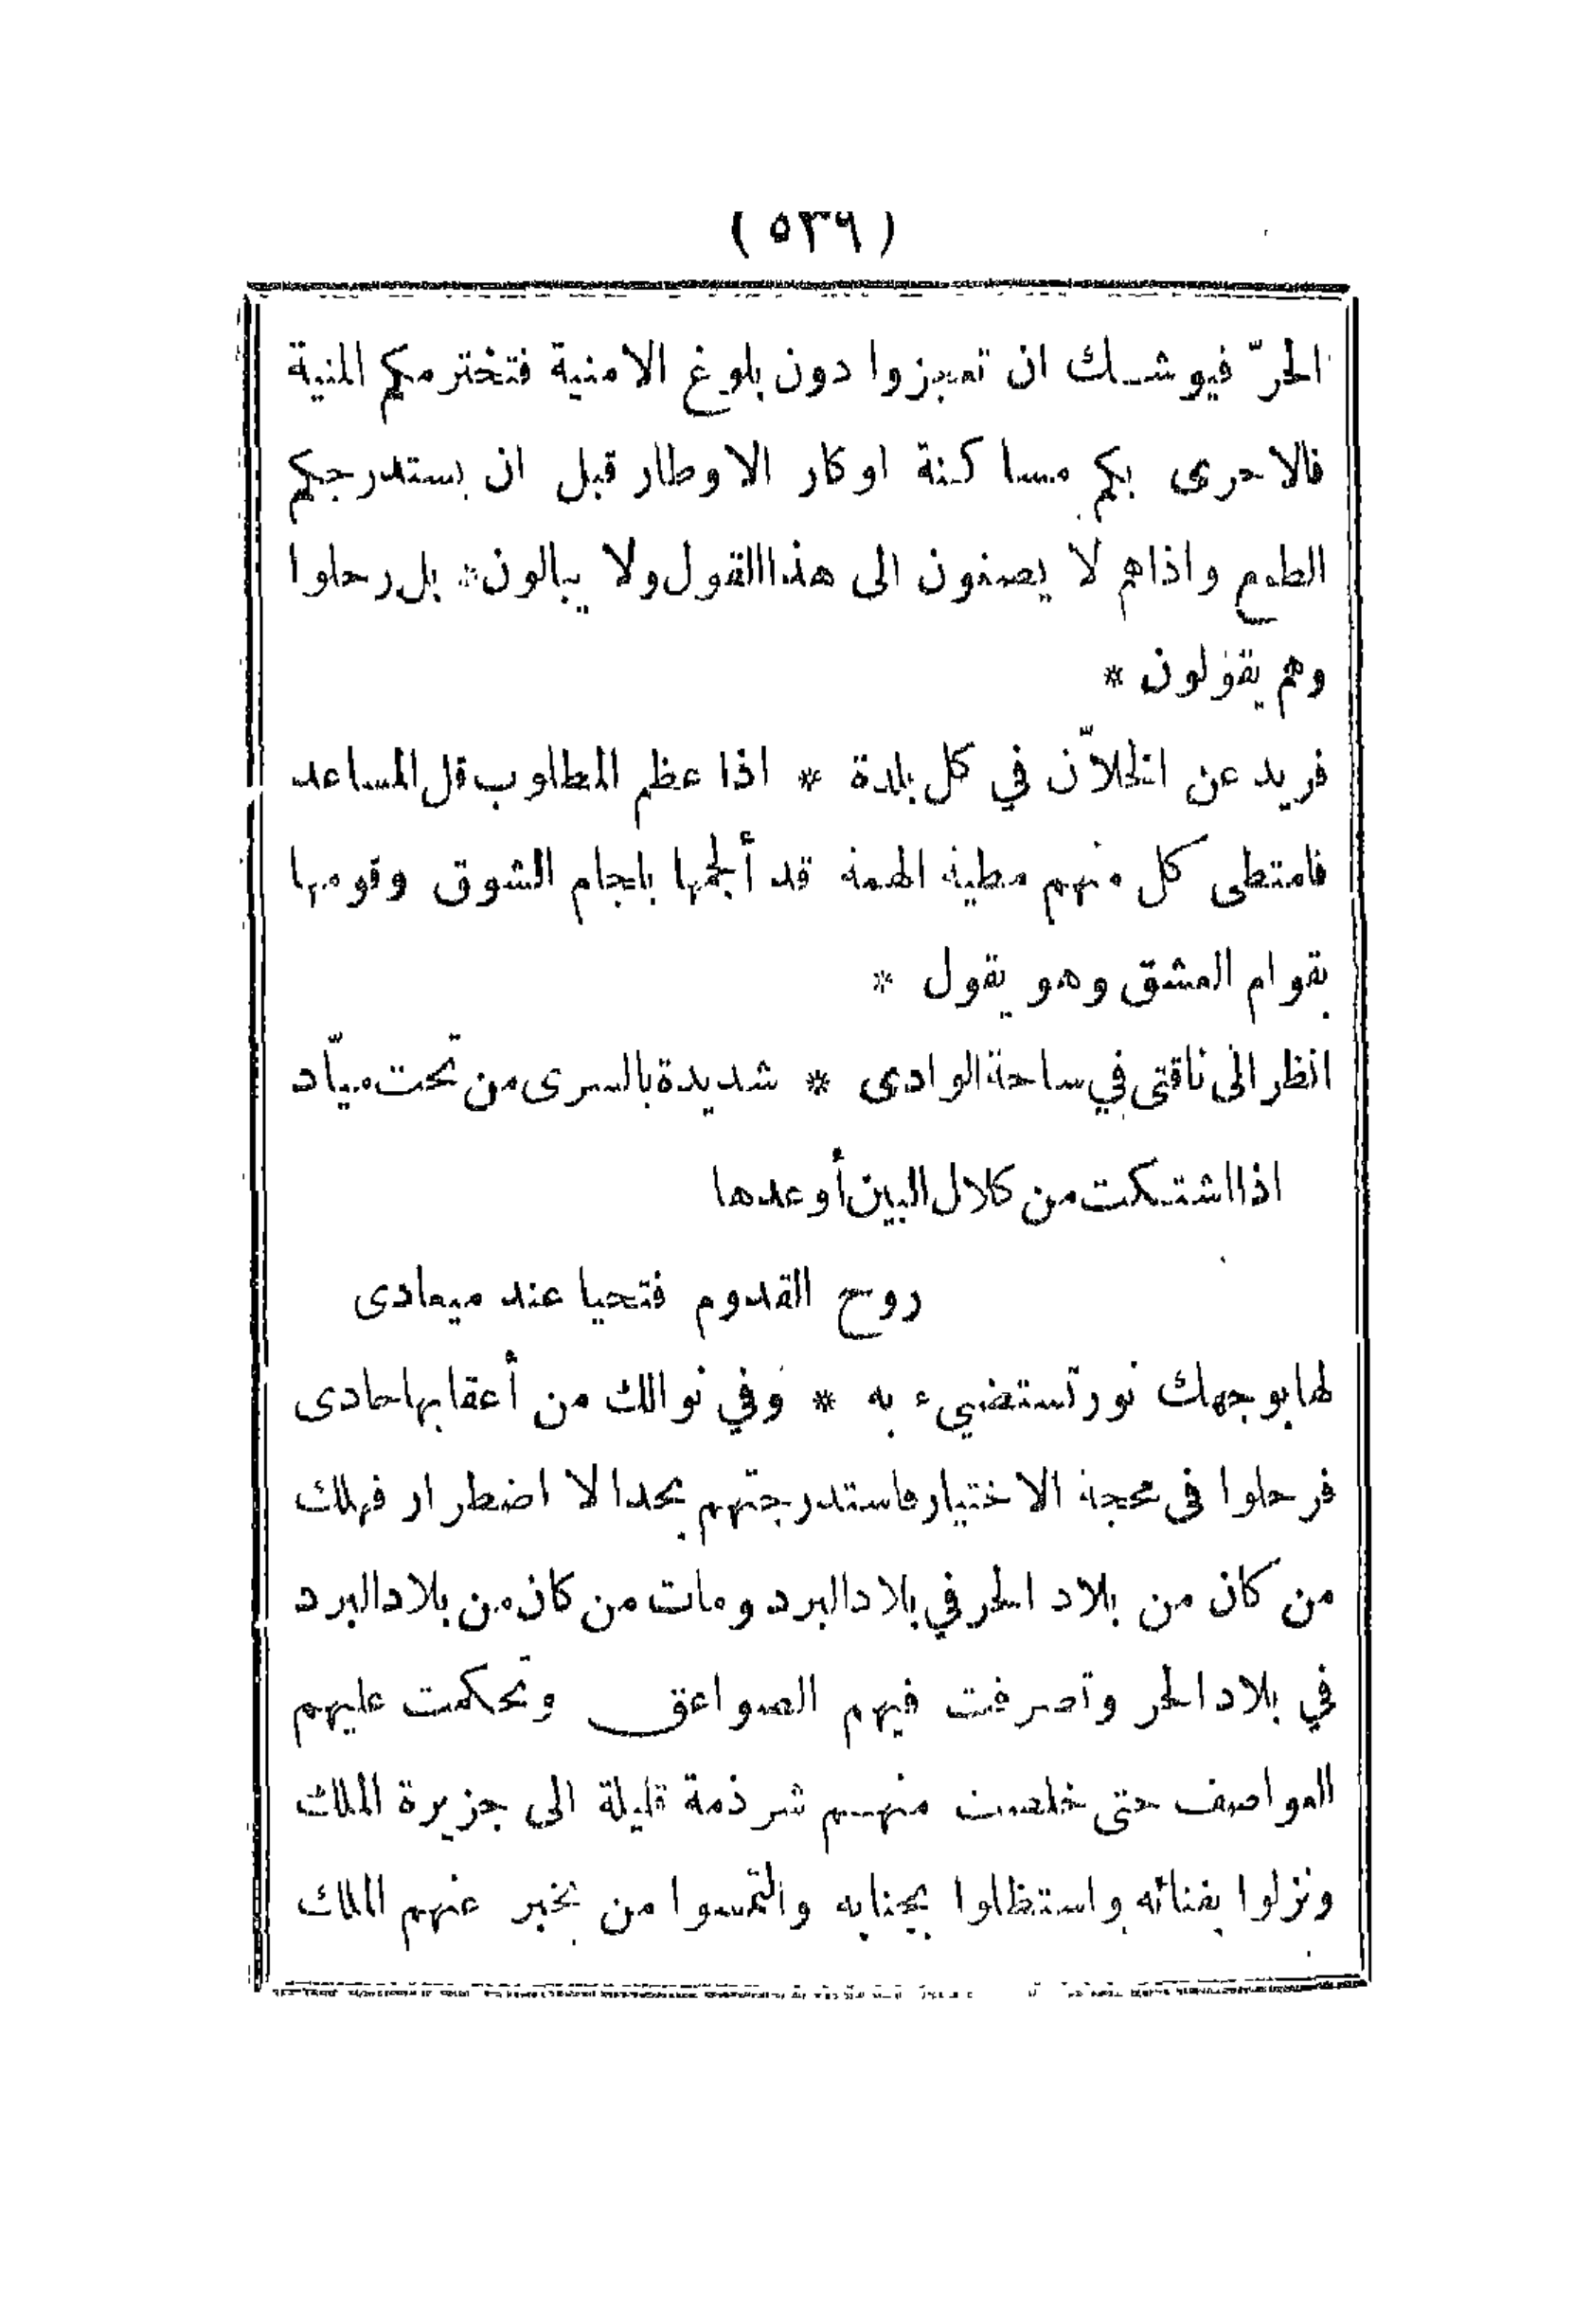 ( ٥٣٩ )
الحرّ فيوشك ان تعجزوا دون بلوغ الامنية فتخترمكم المنية
فالاحرى بكم مساكنة اوكار الاوطار قبل ان يستدرجكم
الطمع واذاهم لا يصغون الى هذا القول ولا يبالون * بل رحلوا
وهم يقولون *
فريد عن الخلاّن في كل بلدة * اذا عظم المطلوب قل المساعد
فامتطى كل منهم مطية الهمة قد ألجمها بلجام الشوق وقومها
بقوام العشق وهو يقول *
انظر الى ناقتى في ساحة الوادى * شديدة بالسرى من تحت ميّاد
اذا اشتكت من كلال البين أوعدها
روح القدوم فتحيا عند ميعادى
لها بوجهك نور تستضيء به * وفي نوالك من أعقابها حادى
فرحلوا فى محجة الاختيار فاستدرجتهم بحد الاضطرار فهلك
من كان من بلاد الحر في بلاد البرد ومات من كان من بلاد البرد
في بلاد الحر وتصرفت فيهم الصواعق وتحكمت عليهم
العواصف حتى خلصت منهم شرذمة قليلة الى جزيرة الملك
ونزلوا بفنائه واستظلوا بجنابه والتمسوا من يخبر عنهم الملك